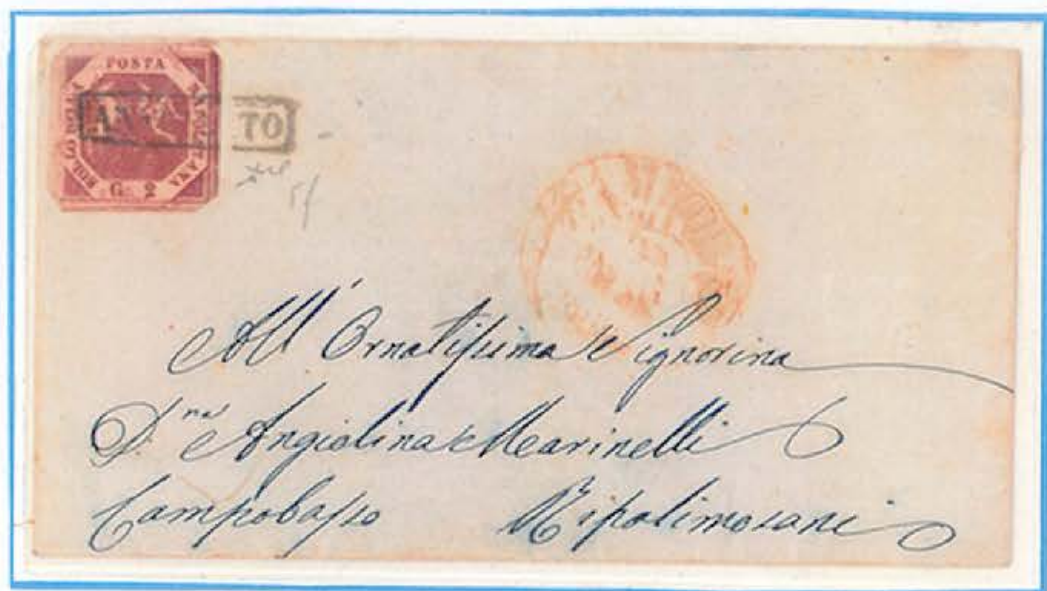 POSTA
NAPOLETANA
BOLLO DELLA
G. 2
AN TO
All' Ornatissima Signorina
D.na Angiolina Marinelli
Campobasso Ripalimosani